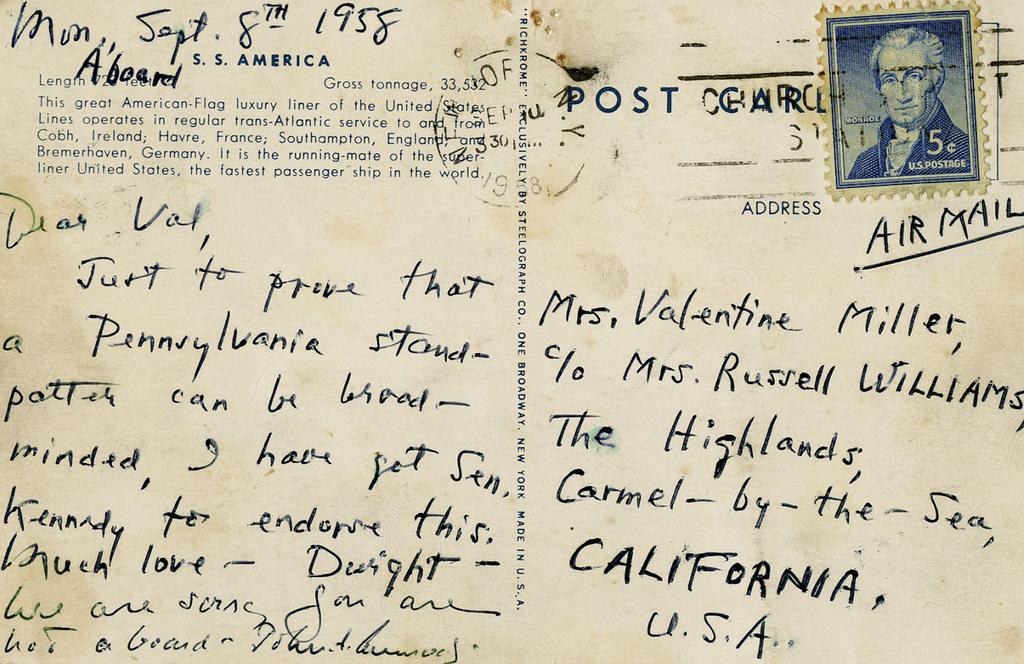 Mon, Sept. 8TH 1958
Aboard
S. S. AMERICA
Length 723 feet Gross tonnage, 33,532
This great American-Flag luxury liner of the United States
Lines operates in regular trans-Atlantic service to and from
Cobh, Ireland; Havre, France; Southampton, England; and
Bremerhaven, Germany. It is the running-mate of the super-
liner United States, the fastest passenger ship in the world.
Dear Val,
Just to prove that
a Pennsylvania stand-
patter can be broad-
minded, I have got Sen.
Kennedy to endorse this.
Much love - Dwight -
We are sorry you are
not aboard -
"RICHKROME" EXCLUSIVELY BY STEELOGRAPH CO., ONE BROADWAY, NEW YORK MADE IN U.S.A.
OF N.Y.
SEP
330
1958
POST CARD
CHURCH
STA
MONROE
5¢
U.S. POSTAGE
ADDRESS
AIR MAIL
Mrs. Valentine Miller,
c/o Mrs. Russell WILLIAMS,
The Highlands,
Carmel-by-the-Sea,
CALIFORNIA.
U.S.A.